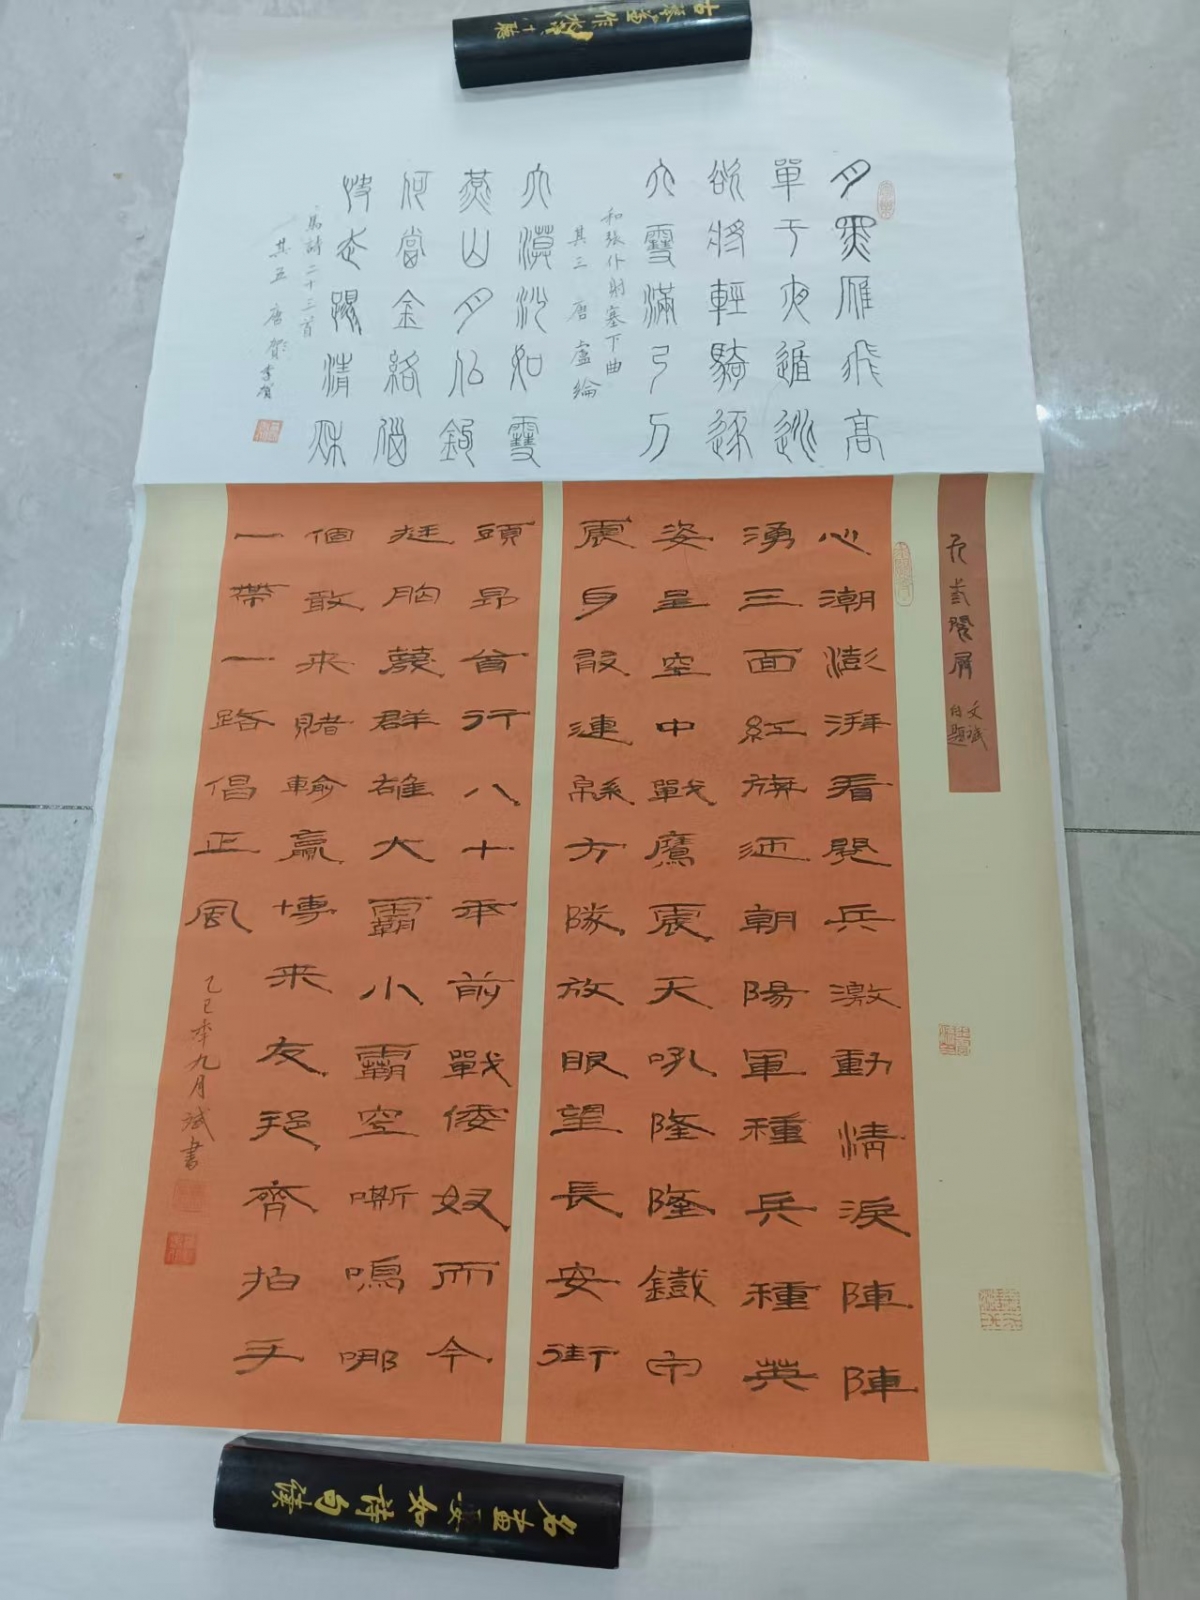 古琴兼作水聲聽
月黑雁飛高
單于夜遁逃
欲將輕騎逐
大雪滿弓刀
和張仆射塞下曲
其三 唐 盧綸
大漠沙如雪
燕山月似鉤
何當金絡腦
快走踏清秋
馬詩二十三首
其五 唐 李賀
文斌
自題
心潮澎湃看閱兵激動情淚陣陣
湧三面紅旗迎朝陽軍種兵種英
姿呈空中戰鷹震天吼隆隆鐵甲
震身段連綿方隊放眼望長安街
頭昂首行八十年前戰倭奴而今
挺胸蔑群雄大霸小霸空嘶鳴哪
個敢來賭輸贏博來友邦齊拍手
一帶一路倡正風
乙巳年九月斌書
名畫要如詩句讀